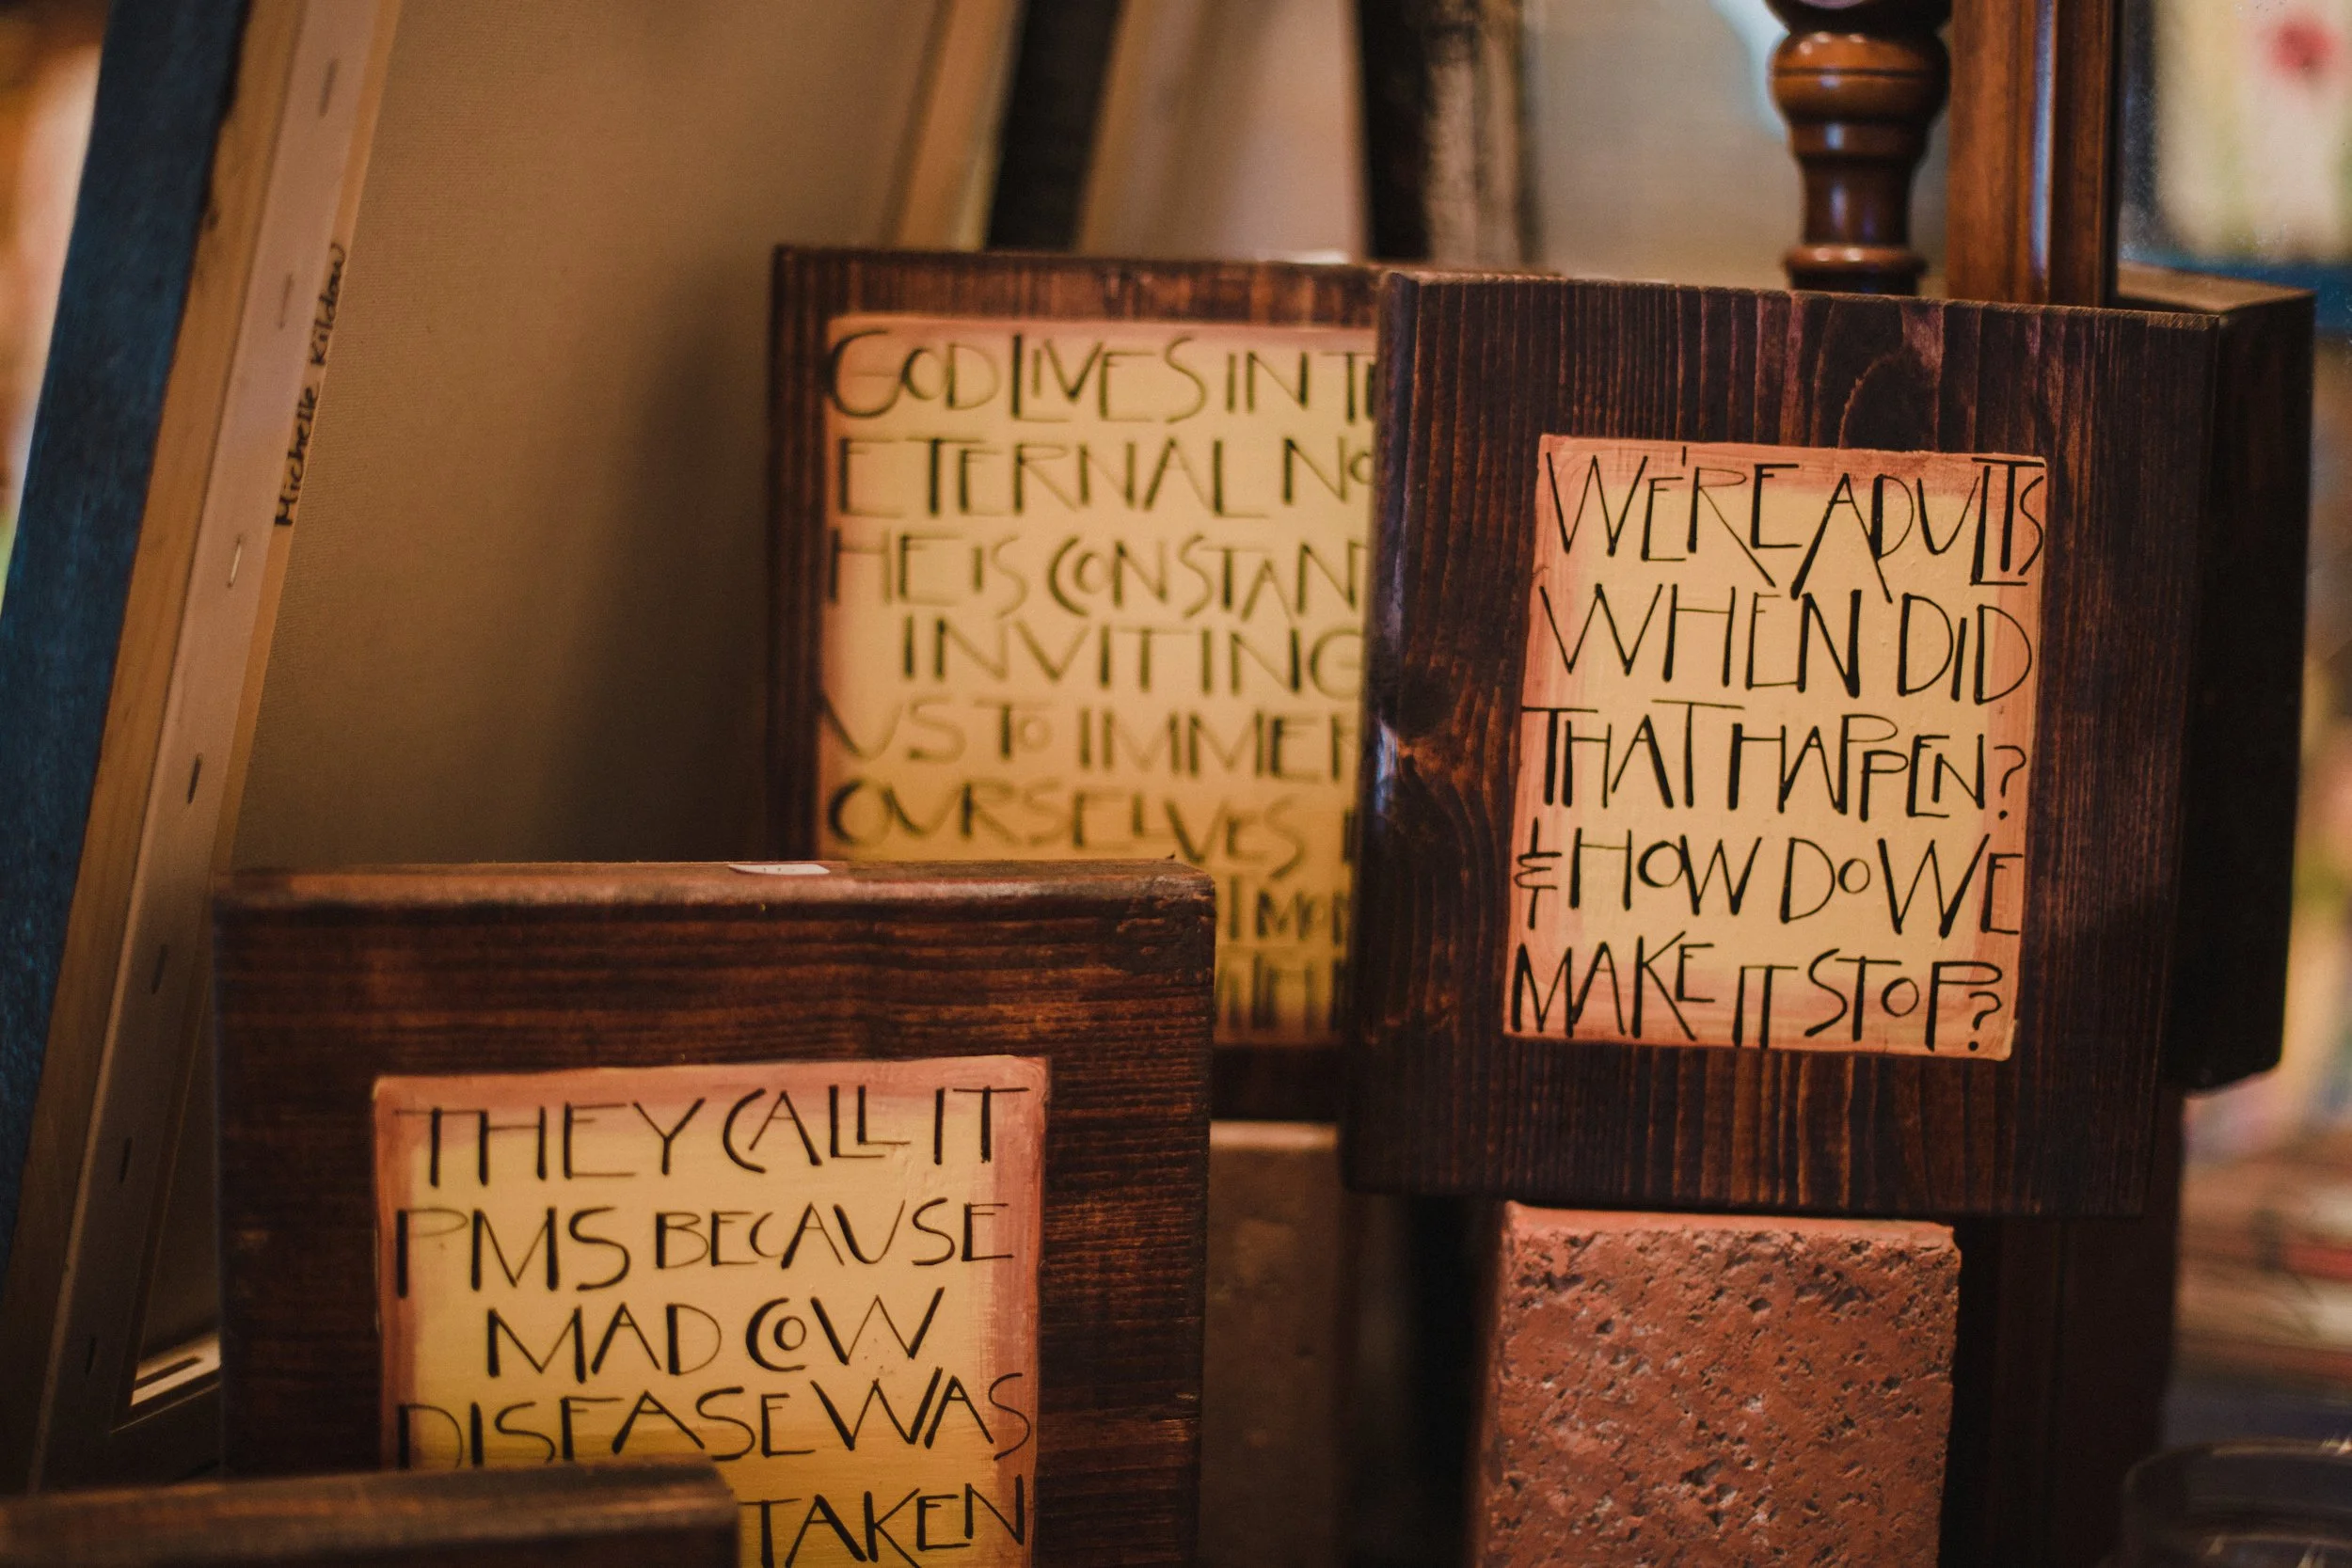 Michelle Kildow
GOD LIVES IN
ETERNAL
HE IS
INVITING
US TO
OURSELVES
WE'RE ADULTS
WHEN DID
THAT HAPPEN?
& HOW DO WE
MAKE IT STOP?
THEY CALL IT
PMS BECAUSE
MAD COW
DISEASE WAS
TAKEN